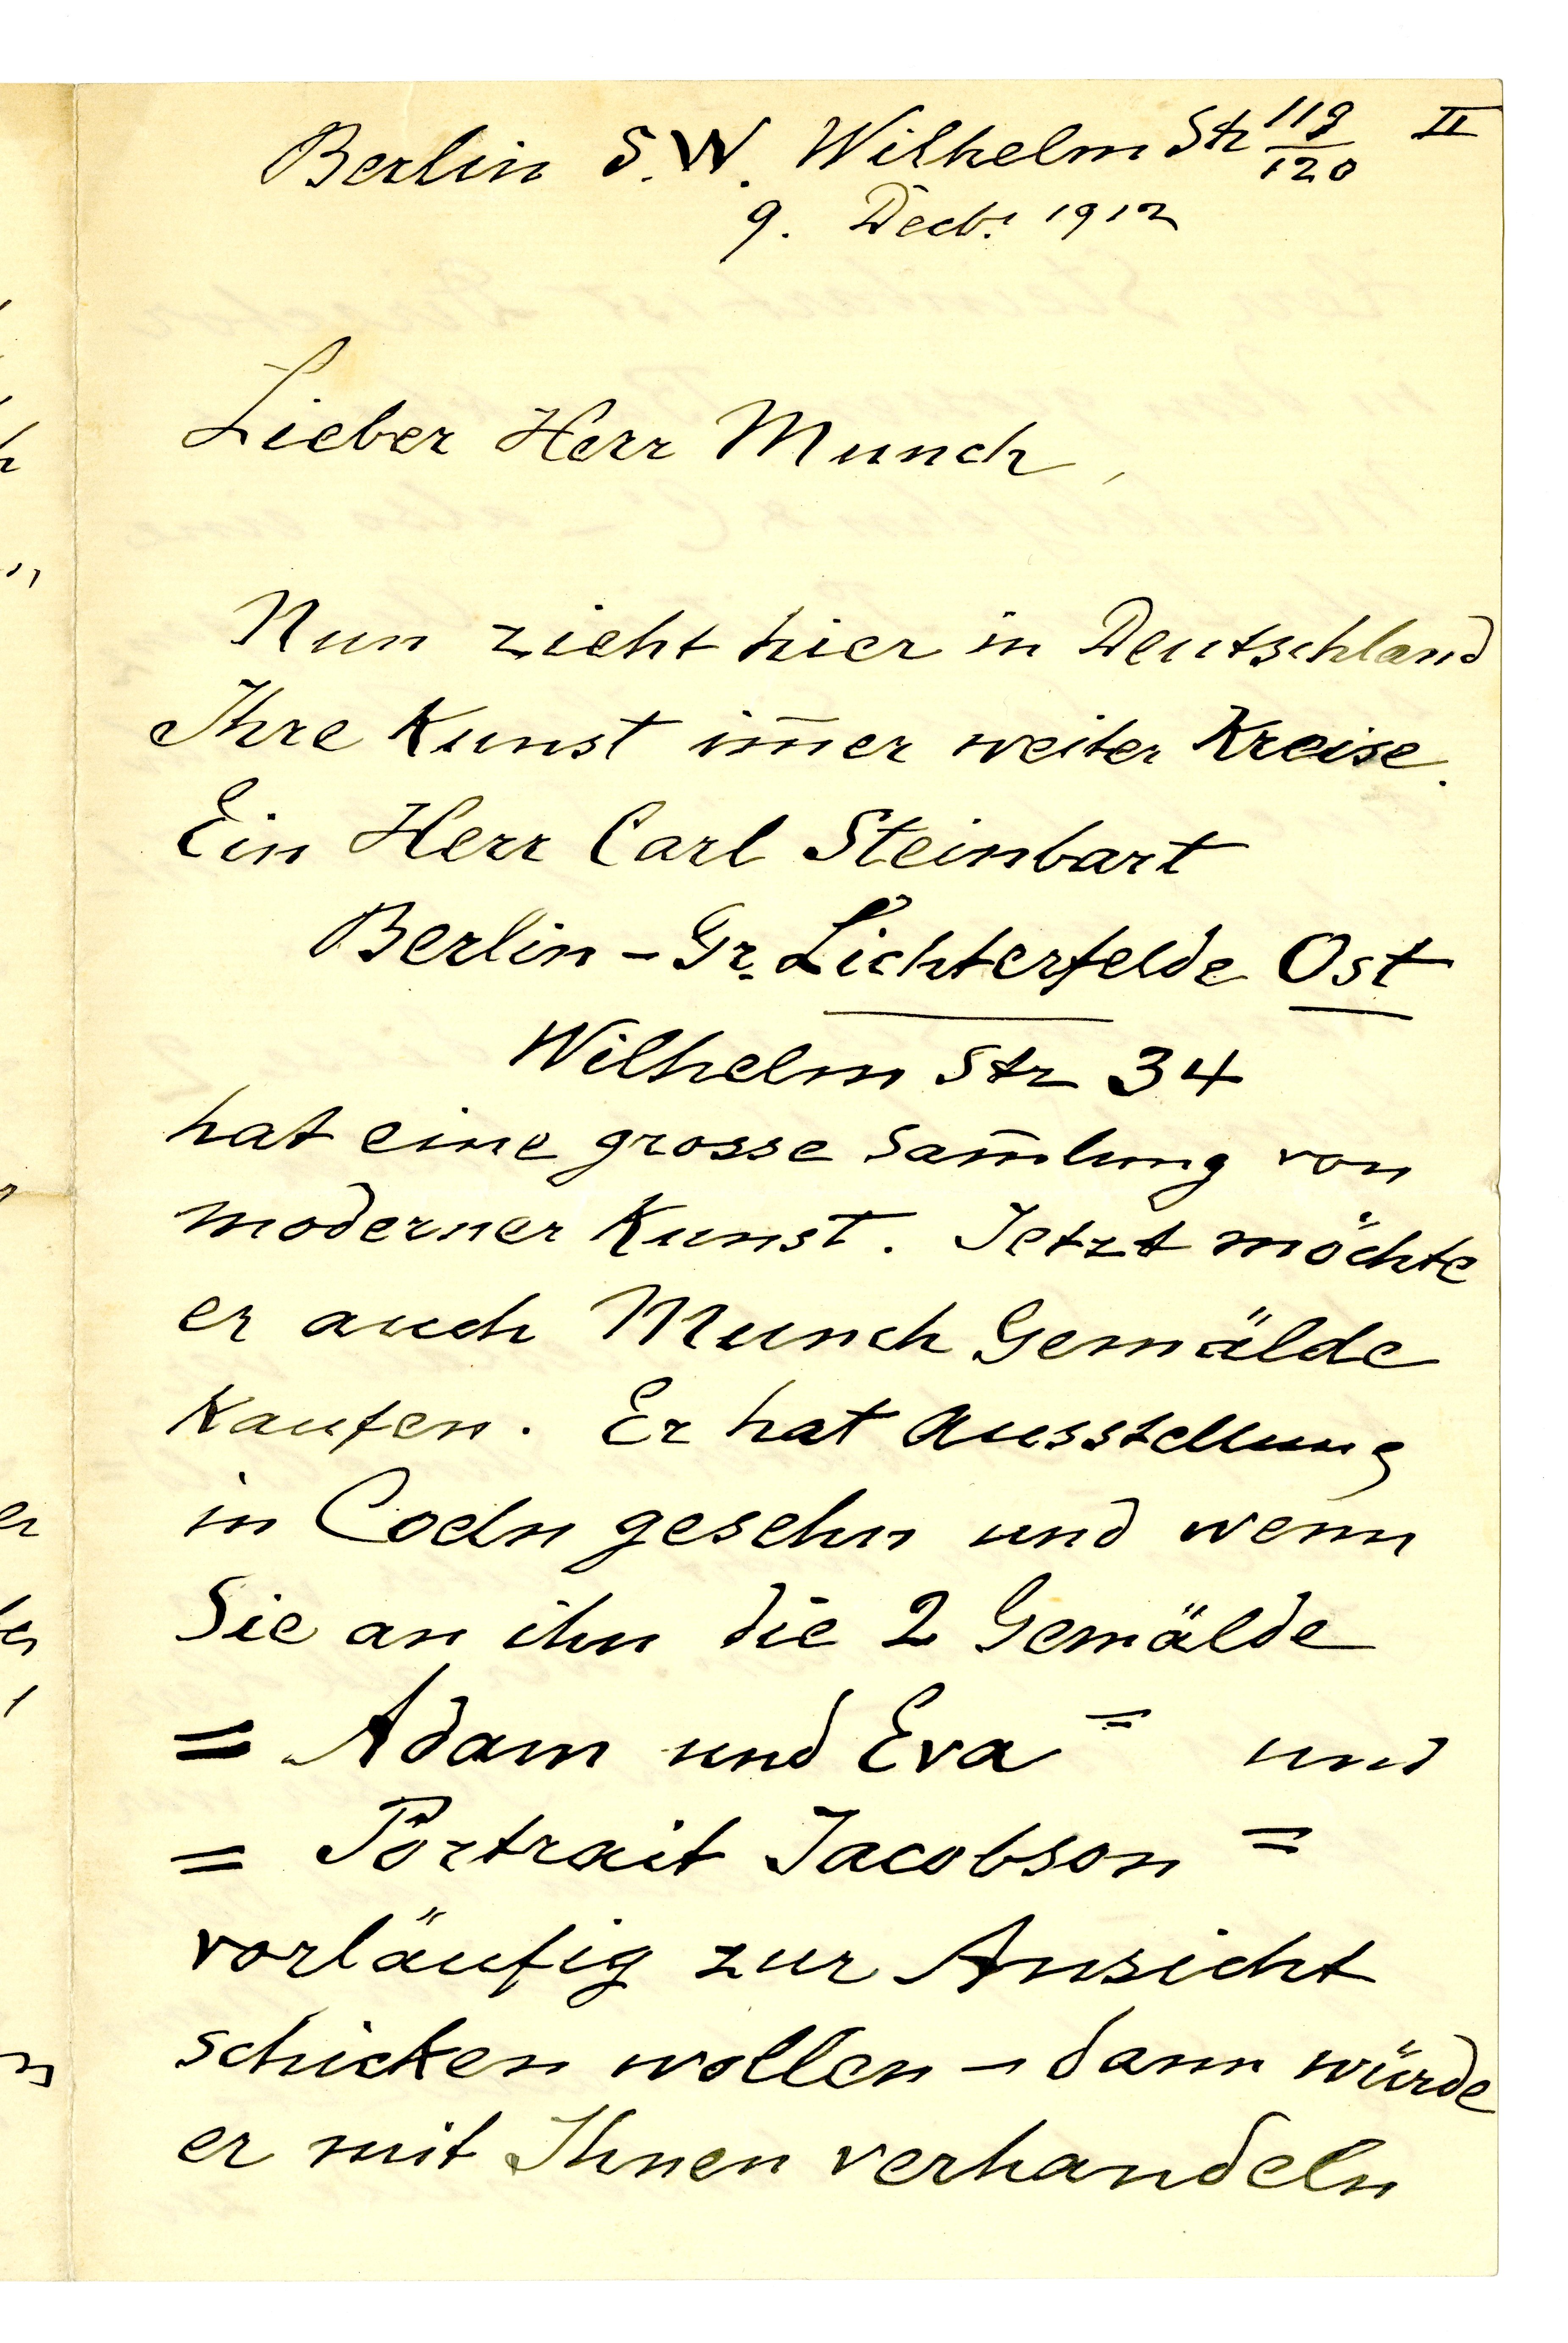 Berlin S.W. Wilhelm Str 119/120 II
9. Decbr 1912
Lieber Herr Munch,
Nun zieht hier in Deutschland
Ihre Kunst im̅er weiter Kreise.
Ein Herr Carl Steinbart
Berlin - Gr. Lichterfelde Ost
Wilhelm Str 34
hat eine grosse Sam̅lung von
moderner Kunst. Jetzt möchte
er auch Munch Gemälde
kaufen. Er hat Ausstellung
in Coeln gesehn und wenn
Sie an ihn die 2 Gemälde
= Adam und Eva = und
= Portrait Jacobson =
vorläufig zur Ansicht
schicken wollen – dann würde
er mit Ihnen verhandeln